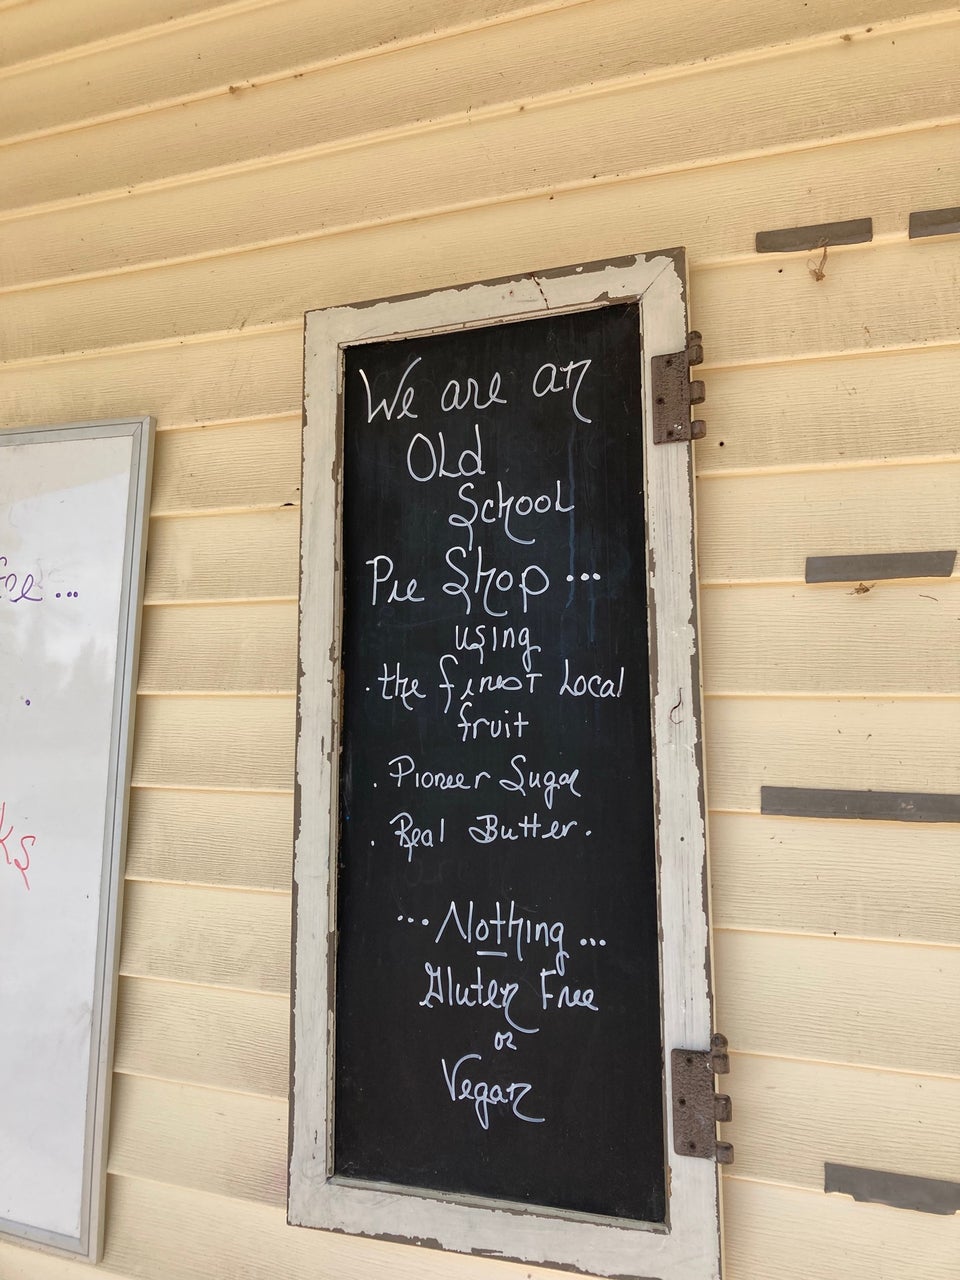 We are an
Old
School
Pie Shop ...
using
. the finest Local
fruit
. Pioneer Sugar
. Real Butter.
... Nothing ...
Gluten Free
or
Vegan